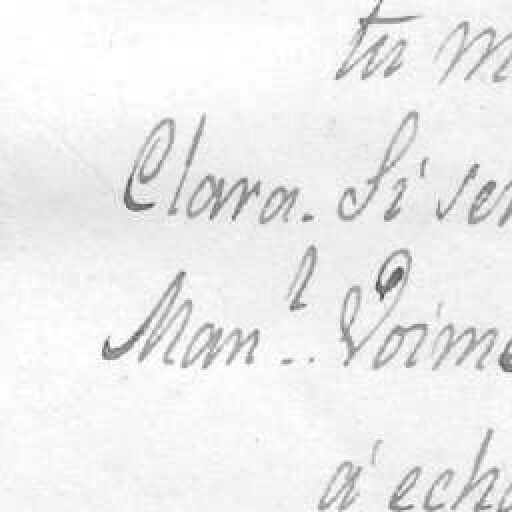 tu m
Clara. Si ser
Man.l Voime
á echa